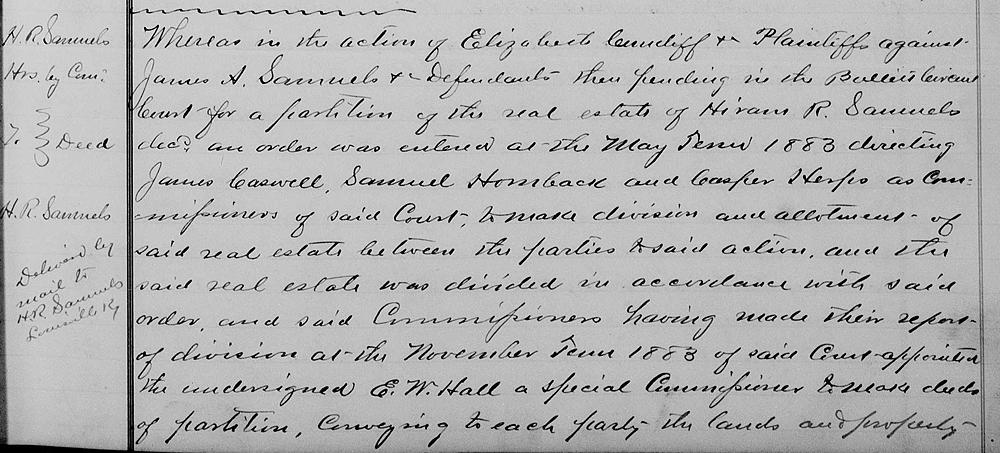 H. R. Samuels
Hrs. by Com:
T. } Deed
H. R. Samuels
Delivered by
mail to
H R Samuels
Louisville Ky
Whereas in the action of Elizabeth Cundiff &c Plaintiffs against
James A. Samuels &c Defendants then pending in the Bullitt Circuit
Court for a partition of the real estate of Hiram R. Samuels
decd. an order was entered at the May Term 1883 directing
James Caswell, Samuel Hornback and Casper Herps as Com=
=missioners of said Court, to make division and allotment of
said real estate between the parties to said action, and the
said real estate was divided in accordance with said
order, and said Commissioners having made their report
of division at the November Term 1883 of said Court appointed
the undersigned E. W. Hall a special Commissioner to make deeds
of partition, Conveying to each party the lands and property